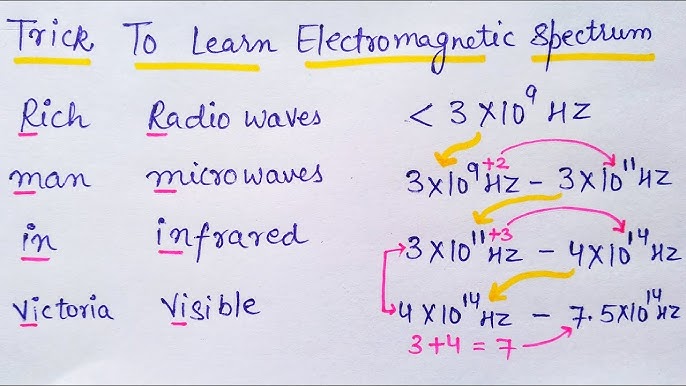 Trick To Learn Electromagnetic Spectrum
Rich Radio waves < 3×10⁹ Hz
man microwaves 3×10⁹ Hz - 3×10¹¹ Hz
+2
in infrared 3×10¹¹ Hz - 4×10¹⁴ Hz
+3
Victoria Visible 4×10¹⁴ Hz - 7.5×10¹⁴ Hz
3+4=7